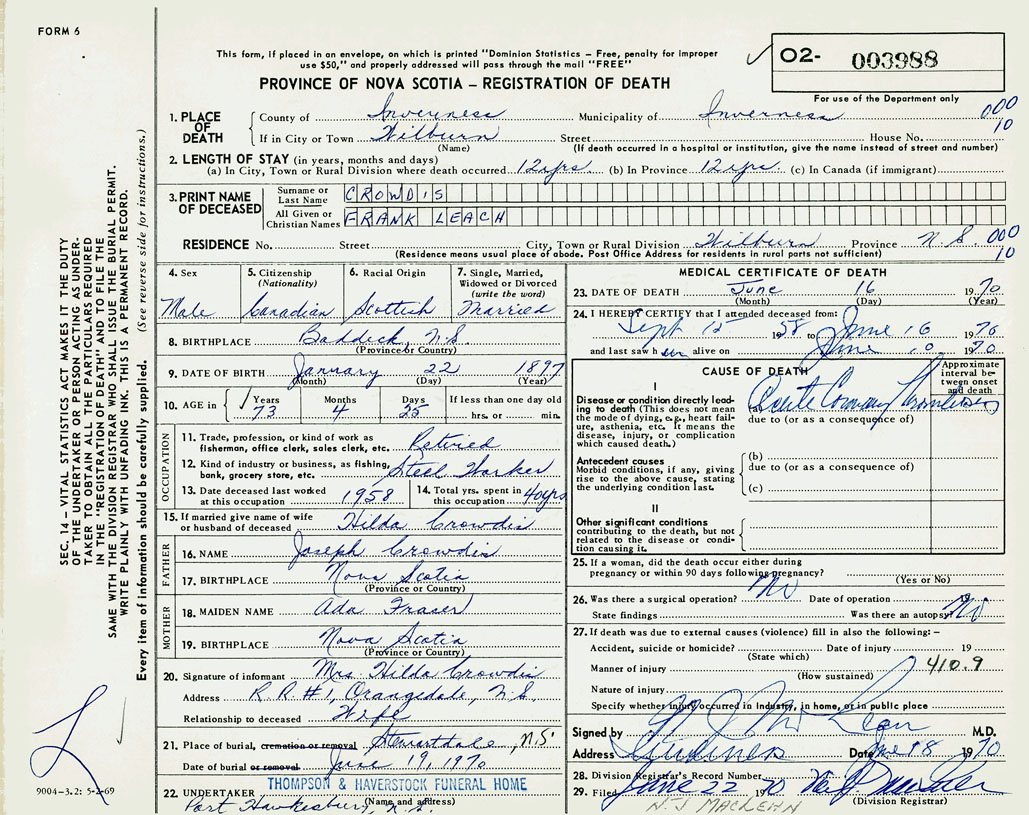 FORM 6
This form, if placed in an envelope, on which is printed "Dominion Statistics – Free, penalty for improper
use $50," and properly addressed will pass through the mail "FREE"
PROVINCE OF NOVA SCOTIA – REGISTRATION OF DEATH
O2- 003988
For use of the Department only
1. PLACE OF DEATH
County of Inverness Municipality of Inverness 000
If in City or Town Wilburn Street House No. 10
(Name) (If death occurred in a hospital or institution, give the name instead of street and number)
2. LENGTH OF STAY (in years, months and days)
(a) In City, Town or Rural Division where death occurred 12 yrs. (b) In Province 12 yrs. (c) In Canada (if immigrant)
3. PRINT NAME OF DECEASED
Surname or Last Name CROWDIS
All Given or Christian Names FRANK LEACH
RESIDENCE No. Street City, Town or Rural Division Wilburn Province N.S. 000
(Residence means usual place of abode. Post Office Address for residents in rural parts not sufficient) 10
4. Sex
Male
5. Citizenship
(Nationality)
Canadian
6. Racial Origin
Scottish
7. Single, Married,
Widowed or Divorced
(write the word)
Married
8. BIRTHPLACE Baddeck, N.S.
(Province or Country)
9. DATE OF BIRTH January 22 1897
(Month) (Day) (Year)
10. AGE in Years Months Days If less than one day old
73 4 25 hrs. or min.
OCCUPATION
11. Trade, profession, or kind of work as
fisherman, office clerk, sales clerk, etc. Retired
12. Kind of industry or business, as fishing,
bank, grocery store, etc. Steel Worker
13. Date deceased last worked
at this occupation 1958
14. Total yrs. spent in
this occupation 40 yrs
15. If married give name of wife
or husband of deceased Hilda Crowdis
FATHER
16. NAME Joseph Crowdis
17. BIRTHPLACE Nova Scotia
(Province or Country)
MOTHER
18. MAIDEN NAME Ada Fraser
19. BIRTHPLACE Nova Scotia
(Province or Country)
20. Signature of informant Mrs. Hilda Crowdis
Address R.R #1, Orangedale, N.S.
Relationship to deceased Wife
21. Place of burial, cremation or removal Stewartdale, N.S.
Date of burial or removal June 19, 1970
THOMPSON & HAVERSTOCK FUNERAL HOME
22. UNDERTAKER
(Name and address)
Port Hawkesbury, N.S.
MEDICAL CERTIFICATE OF DEATH
23. DATE OF DEATH June 16 1970
(Month) (Day) (Year)
24. I HEREBY CERTIFY that I attended deceased from:
Sept 12 1958 to June 16 1970
and last saw h alive on June 10 1970
CAUSE OF DEATH
Approximate
interval be-
tween onset
and death
I
Disease or condition directly lead-
ing to death (This does not mean
the mode of dying, e.g., heart fail-
ure, asthenia, etc. It means the
disease, injury, or complication
which caused death.)
(a) Acute Coronary Thrombosis
due to (or as a consequence of)
Antecedent causes
Morbid conditions, if any, giving
rise to the above cause, stating
the underlying condition last.
(b)
due to (or as a consequence of)
(c)
II
Other significant conditions
contributing to the death, but not
related to the disease or condi-
tion causing it.
25. If a woman, did the death occur either during
pregnancy or within 90 days following pregnancy?
(Yes or No)
26. Was there a surgical operation? No Date of operation 19
State findings Was there an autopsy? No
27. If death was due to external causes (violence) fill in also the following: –
Accident, suicide or homicide? Date of injury 19
(State which)
Manner of injury 410.9
(How sustained)
Nature of injury
Specify whether injury occurred in industry, in home, or in public place
Signed by M.D.
Address Date June 18 1970
28. Division Registrar's Record Number
29. Filed June 22 1970
(Division Registrar)
N.J MACLEAN
SEC. 14 – VITAL STATISTICS ACT MAKES IT THE DUTY
OF THE UNDERTAKER OR PERSON ACTING AS UNDER-
TAKER TO OBTAIN ALL THE PARTICULARS REQUIRED
IN THE "REGISTRATION OF DEATH" AND TO FILE THE
SAME WITH THE DIVISION REGISTRAR WHO SHALL ISSUE THE BURIAL PERMIT.
WRITE PLAINLY WITH UNFADING INK. THIS IS A PERMANENT RECORD.
Every item of information should be carefully supplied. (See reverse side for instructions.)
9004-3.2: 5-2-69